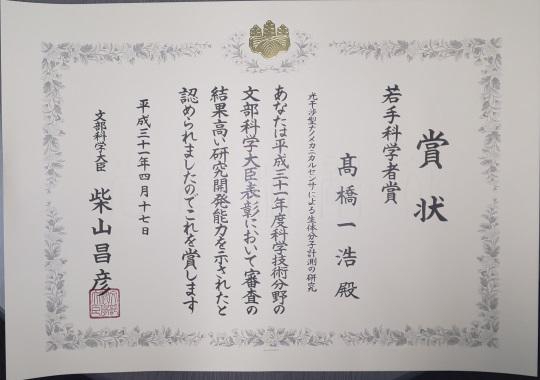 賞状
若手科学者賞
髙橋一浩殿
光干渉型ナノメカニカルセンサによる生体分子計測の研究
あなたは平成三十一年度科学技術分野の
文部科学大臣表彰において審査の
結果高い研究開発能力を示されたと
認められましたのでこれを賞します
平成三十一年四月十七日
文部科学大臣 柴山昌彦